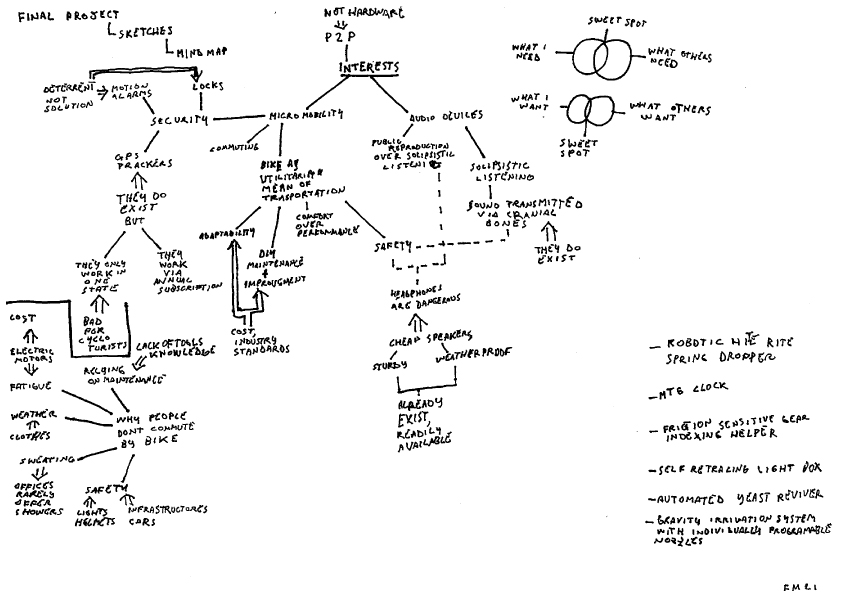 FINAL PROJECT
SKETCHES
MIND MAP
NOT HARDWARE
P2P
INTERESTS
SWEET SPOT
WHAT I
NEED
WHAT OTHERS
NEED
WHAT I
WANT
WHAT OTHERS
WANT
SWEET
SPOT
DETERRENT
NOT
SOLUTION
MOTION
ALARMS
LOCKS
SECURITY
MICROMOBILITY
AUDIO DEVICES
COMMUTING
PUBLIC
REPRODUCTION
OVER SOLIPSISTIC
LISTENING
SOLIPSISTIC
LISTENING
GPS
TRACKERS
BIKE AS
MEAN OF
TRASPORTATION
THEY DO
EXIST
BUT
COMFORT
OVER
PERFORMANCE
SOUND TRANSMITTED
VIA CRANIAL
BONES
ADAPTABILITY
SAFETY
THEY DO
EXIST
THEY ONLY
WORK IN
ONE
STATE
THEY
WORK
VIA
ANNUAL
SUBSCRIPTION
DIY
MAINTENANCE
+
HEADPHONES
ARE DANGEROUS
COST
BAD
FOR
CYCLO
TOURISTS
COST,
INDUSTRY
STANDARDS
CHEAP SPEAKERS
ELECTRIC
MOTORS
LACK OF TOOLS
KNOWLEDGE
STURDY
WEATHERPROOF
FATIGUE
RELYING
ON MAINTENANCE
ALREADY
EXIST,
READILY
AVAILABLE
WEATHER
CLOTHES
WHY PEOPLE
DONT COMMUTE
BY BIKE
SWEATING
OFFICES
RARELY
OFFER
SHOWERS
SAFETY
LIGHTS
HELMETS
INFRASTRUCTURES
CARS
- ROBOTIC HITE RITE
SPRING DROPPER
- MTB CLOCK
- FRICTION SENSITIVE GEAR
INDEXING HELPER
- SELF RETRACING LIGHT BOX
- AUTOMATED YEAST REVIVER
- GRAVITY IRRIVATION SYSTEM
WITH INDIVIDUALLY PROGRAMABLE
NOZZLES